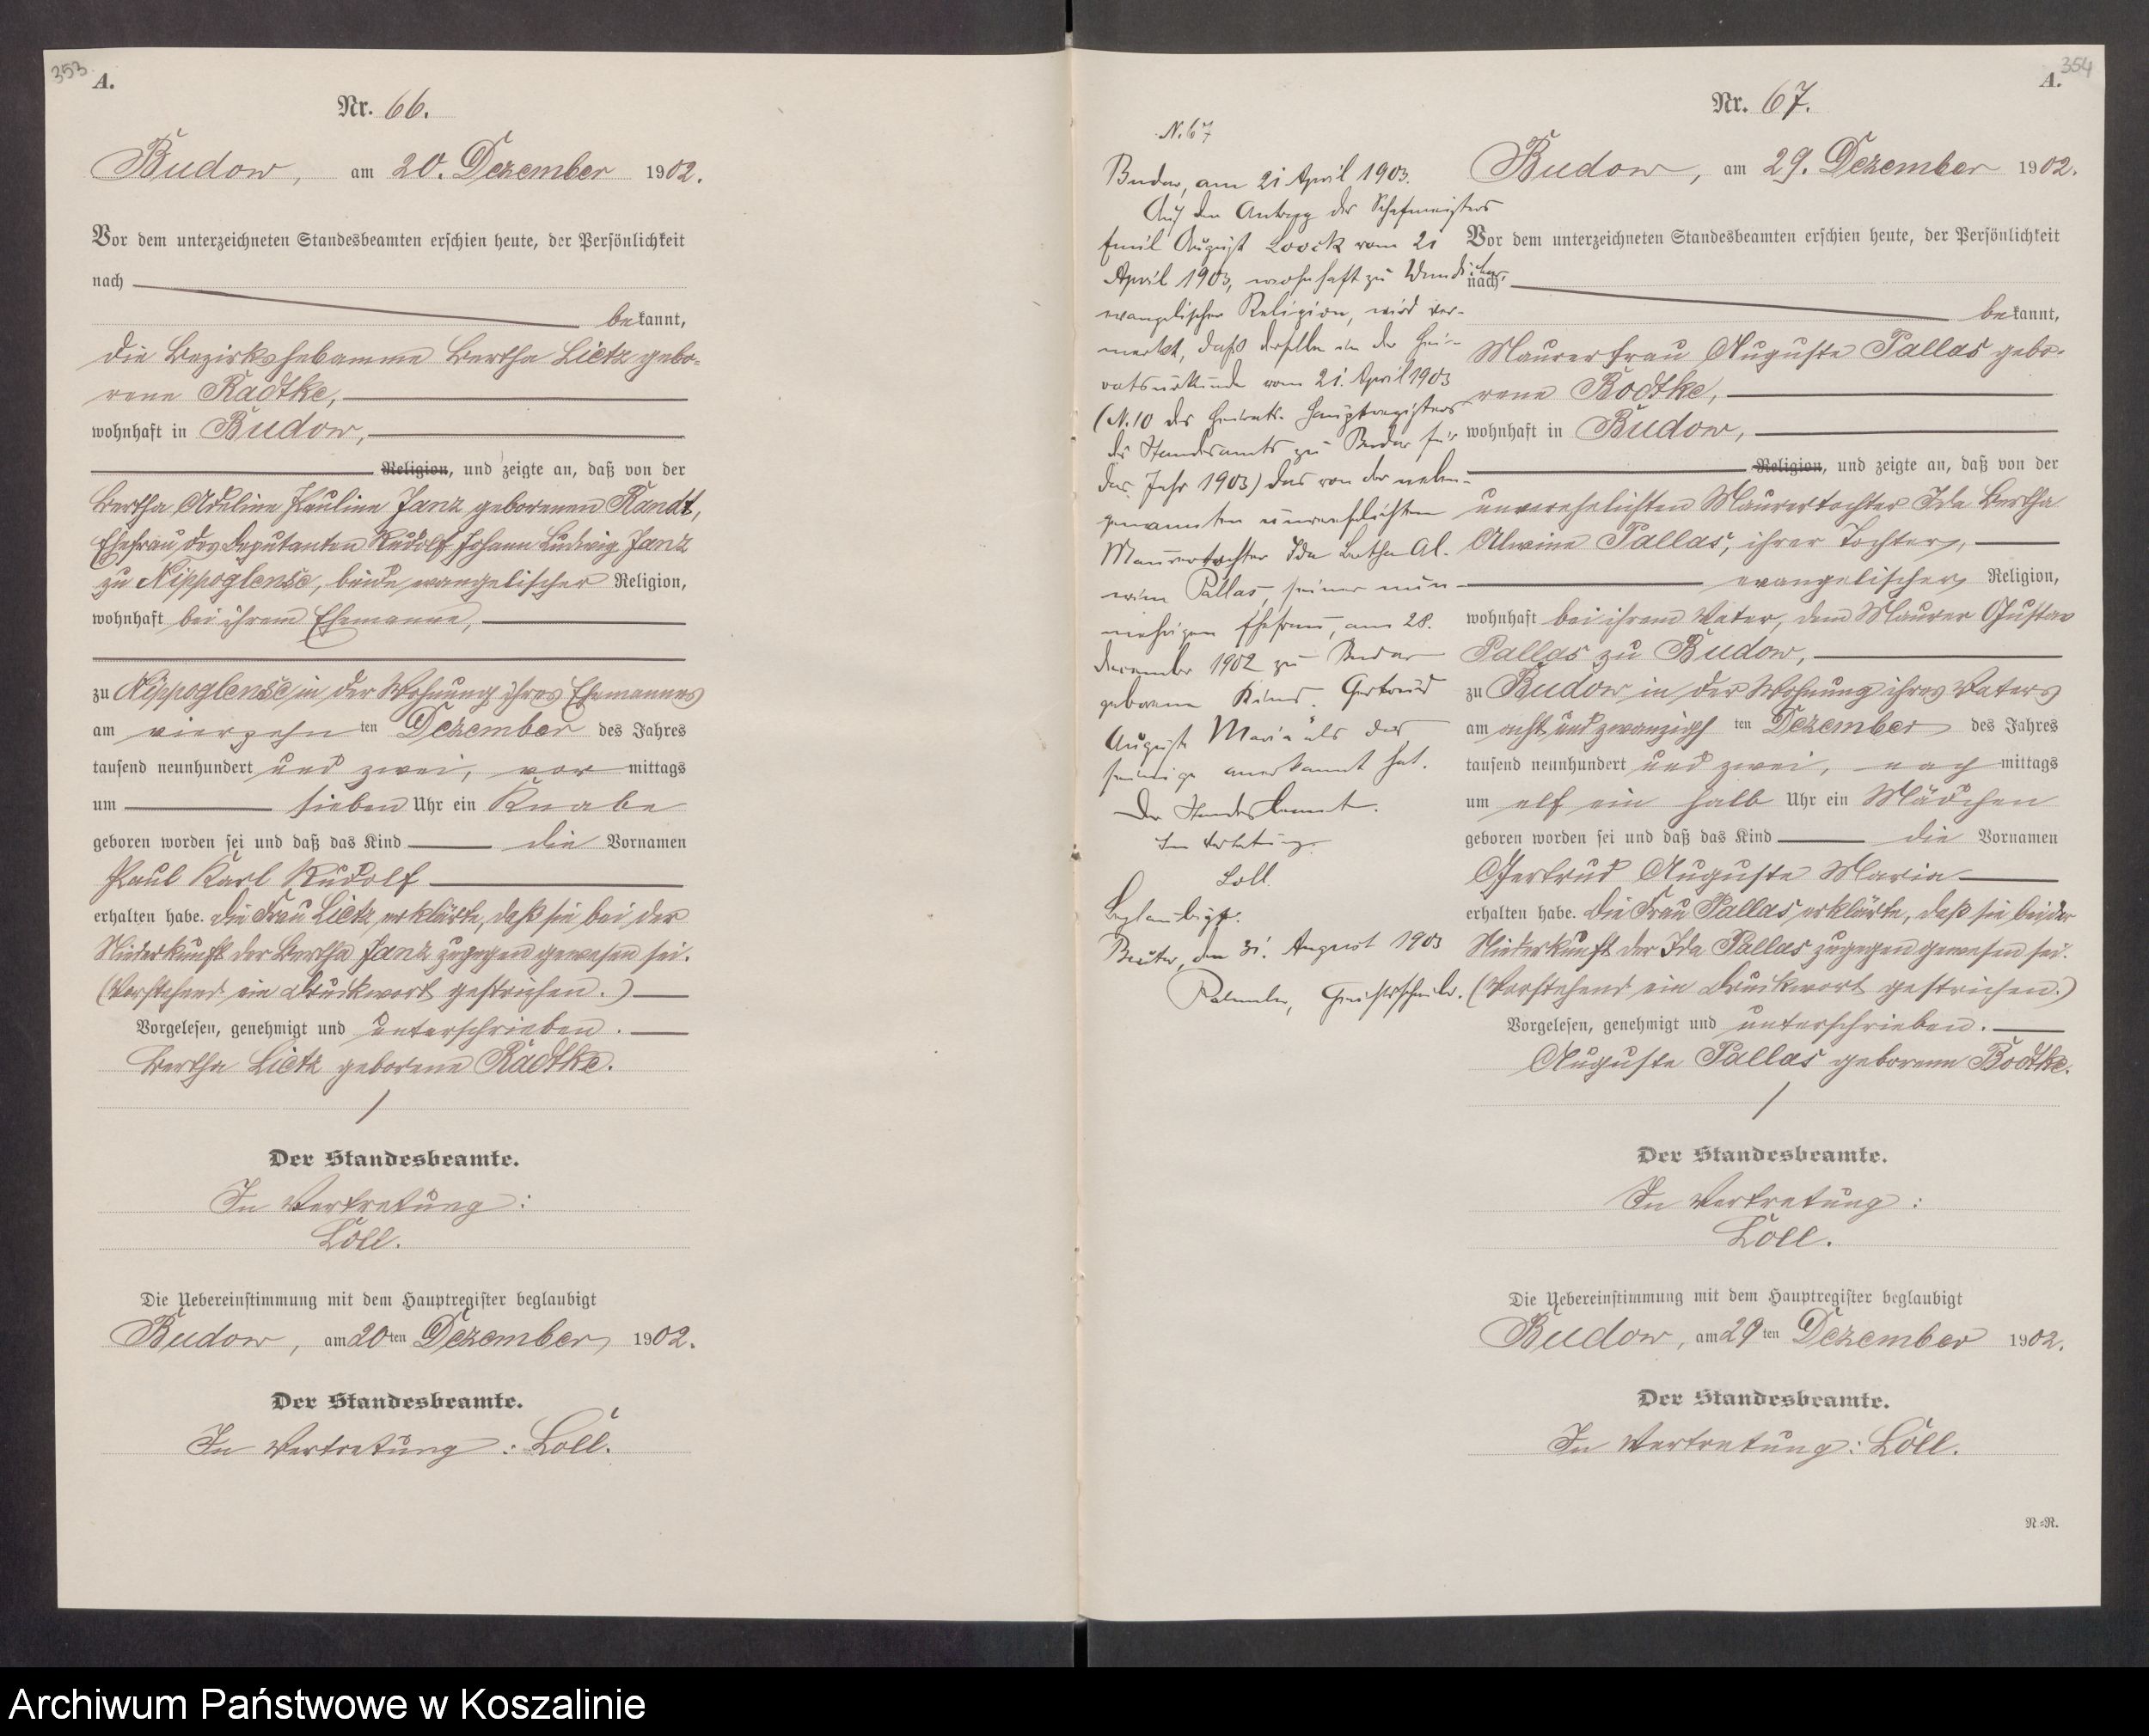 353
A.
Nr. 66.
Budow, am 20. Dezember 1902.
Vor dem unterzeichneten Standesbeamten erschien heute, der Persönlichkeit
nach
bekannt,
die Bezirkshebamme Bertha Lietz gebo-
rene Radtke,
wohnhaft in Budow,
Religion, und zeigte an, daß von der
Bertha Adeline Pauline Janz geborenen Randt,
Ehefrau des Deputanten Rudolf Johann Ludwig Janz
zu Nippoglense, beide evangelischer Religion,
wohnhaft bei ihrem Ehemanne,
zu Nippoglense in der Wohnung ihres Ehemannes
am vierzehn ten Dezember des Jahres
tausend neunhundert und zwei, vor mittags
um sieben Uhr ein Knabe
geboren worden sei und daß das Kind die Vornamen
Paul Karl Rudolf
erhalten habe. Die Frau Lietz erklärte, daß sie bei der
Niederkunft der Bertha Janz zugegen gewesen sei.
(Vorstehend ein Druckwort gestrichen.)
Vorgelesen, genehmigt und unterschrieben.
Bertha Lietz geborene Radtke.
Der Standesbeamte.
In Vertretung:
Loll.
Die Uebereinstimmung mit dem Hauptregister beglaubigt
Budow, am 20ten Dezember 1902.
Der Standesbeamte.
In Vertretung: Loll.
N. 67
Budow, am 21 April 1903.
Auf den Antrag des Schafmeisters
Emil August Loock vom 21
April 1903, wohnhaft zu
evangelischer Religion, wird ver-
merkt, daß derselbe in der Hei-
ratsurkunde vom 21. April 1903
(N. 10 des Heirats-Hauptregisters
des Standesamts zu Budow für
das Jahr 1903) das von der neben-
genannten unverehelichten
Maurertochter Ida Bertha Al-
wine Pallas, seiner nun-
mehrigen Ehefrau, am 28.
December 1902 zu Budow
geborene Kind Gertrud
Auguste Maria als das
seinige anerkannt hat.
Der Standesbeamte.
In Vertretung.
Loll.
Beglaubigt.
den 31. August 1903
Gerichtsschreiber.
354
A.
Nr. 67.
Budow, am 29. Dezember 1902.
Vor dem unterzeichneten Standesbeamten erschien heute, der Persönlichkeit
nach
bekannt,
Maurerfrau Auguste Pallas gebo-
rene Bodtke,
wohnhaft in Budow,
Religion, und zeigte an, daß von der
unverehelichten Maurertochter Ida Bertha
Alwine Pallas, ihrer Tochter,
evangelischer Religion,
wohnhaft bei ihrem Vater, dem Maurer Gustav
Pallas zu Budow,
zu Budow in der Wohnung ihres Vaters
am acht und zwanzigsten Dezember des Jahres
tausend neunhundert und zwei, nach mittags
um elf ein halb Uhr ein Mädchen
geboren worden sei und daß das Kind die Vornamen
Gertrud Auguste Maria
erhalten habe. Die Frau Pallas erklärte, daß sie bei der
Niederkunft der Ida Pallas zugegen gewesen sei.
(Vorstehend ein Druckwort gestrichen.)
Vorgelesen, genehmigt und unterschrieben.
Auguste Pallas geborene Bodtke.
Der Standesbeamte.
In Vertretung:
Loll.
Die Uebereinstimmung mit dem Hauptregister beglaubigt
Budow, am 29ten Dezember 1902.
Der Standesbeamte.
In Vertretung: Loll.
N=R.
Archiwum Państwowe w Koszalinie